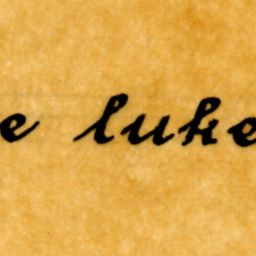 e luke